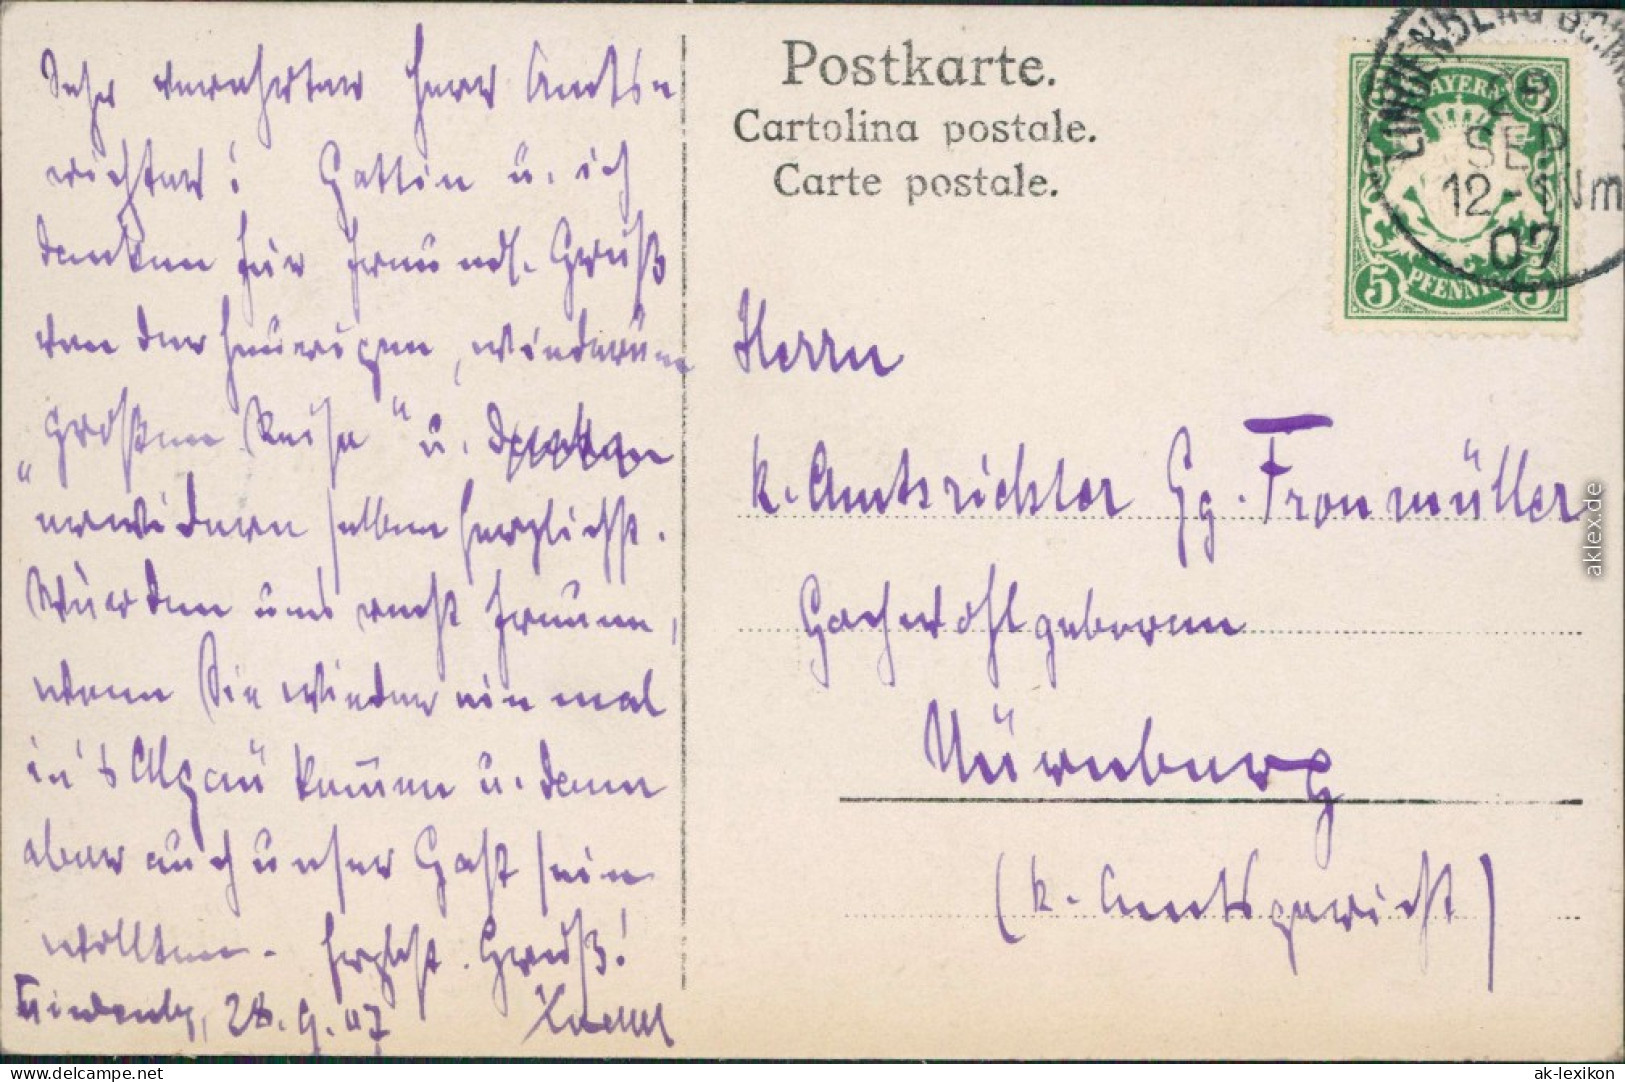 Sehr verehrter Herr Amts=
richter! Gattin u. ich
danken für freundl. Gruß
von der heurigen, wiederum
„großen Reise“ u.
erwidern selben herzlichst.
Würden uns recht freuen,
wenn Sie wieder ein mal
in's Algäu kommen u. dann
aber auch unser Gast sein
wollten. Herzlichst. Gruß!
Lindenbg, 28. 9. 07
Postkarte.
Cartolina postale.
Carte postale.
BAYERN
5 PFENNIG 5
28
SEP
12-1 Nm
07
Herrn
k. Amtsrichter Gg. Fronmüller
Hochwohlgeboren
Nürnberg
(k. Amtsgericht)
aklex.de
www.delcampe.net
ak-lexikon